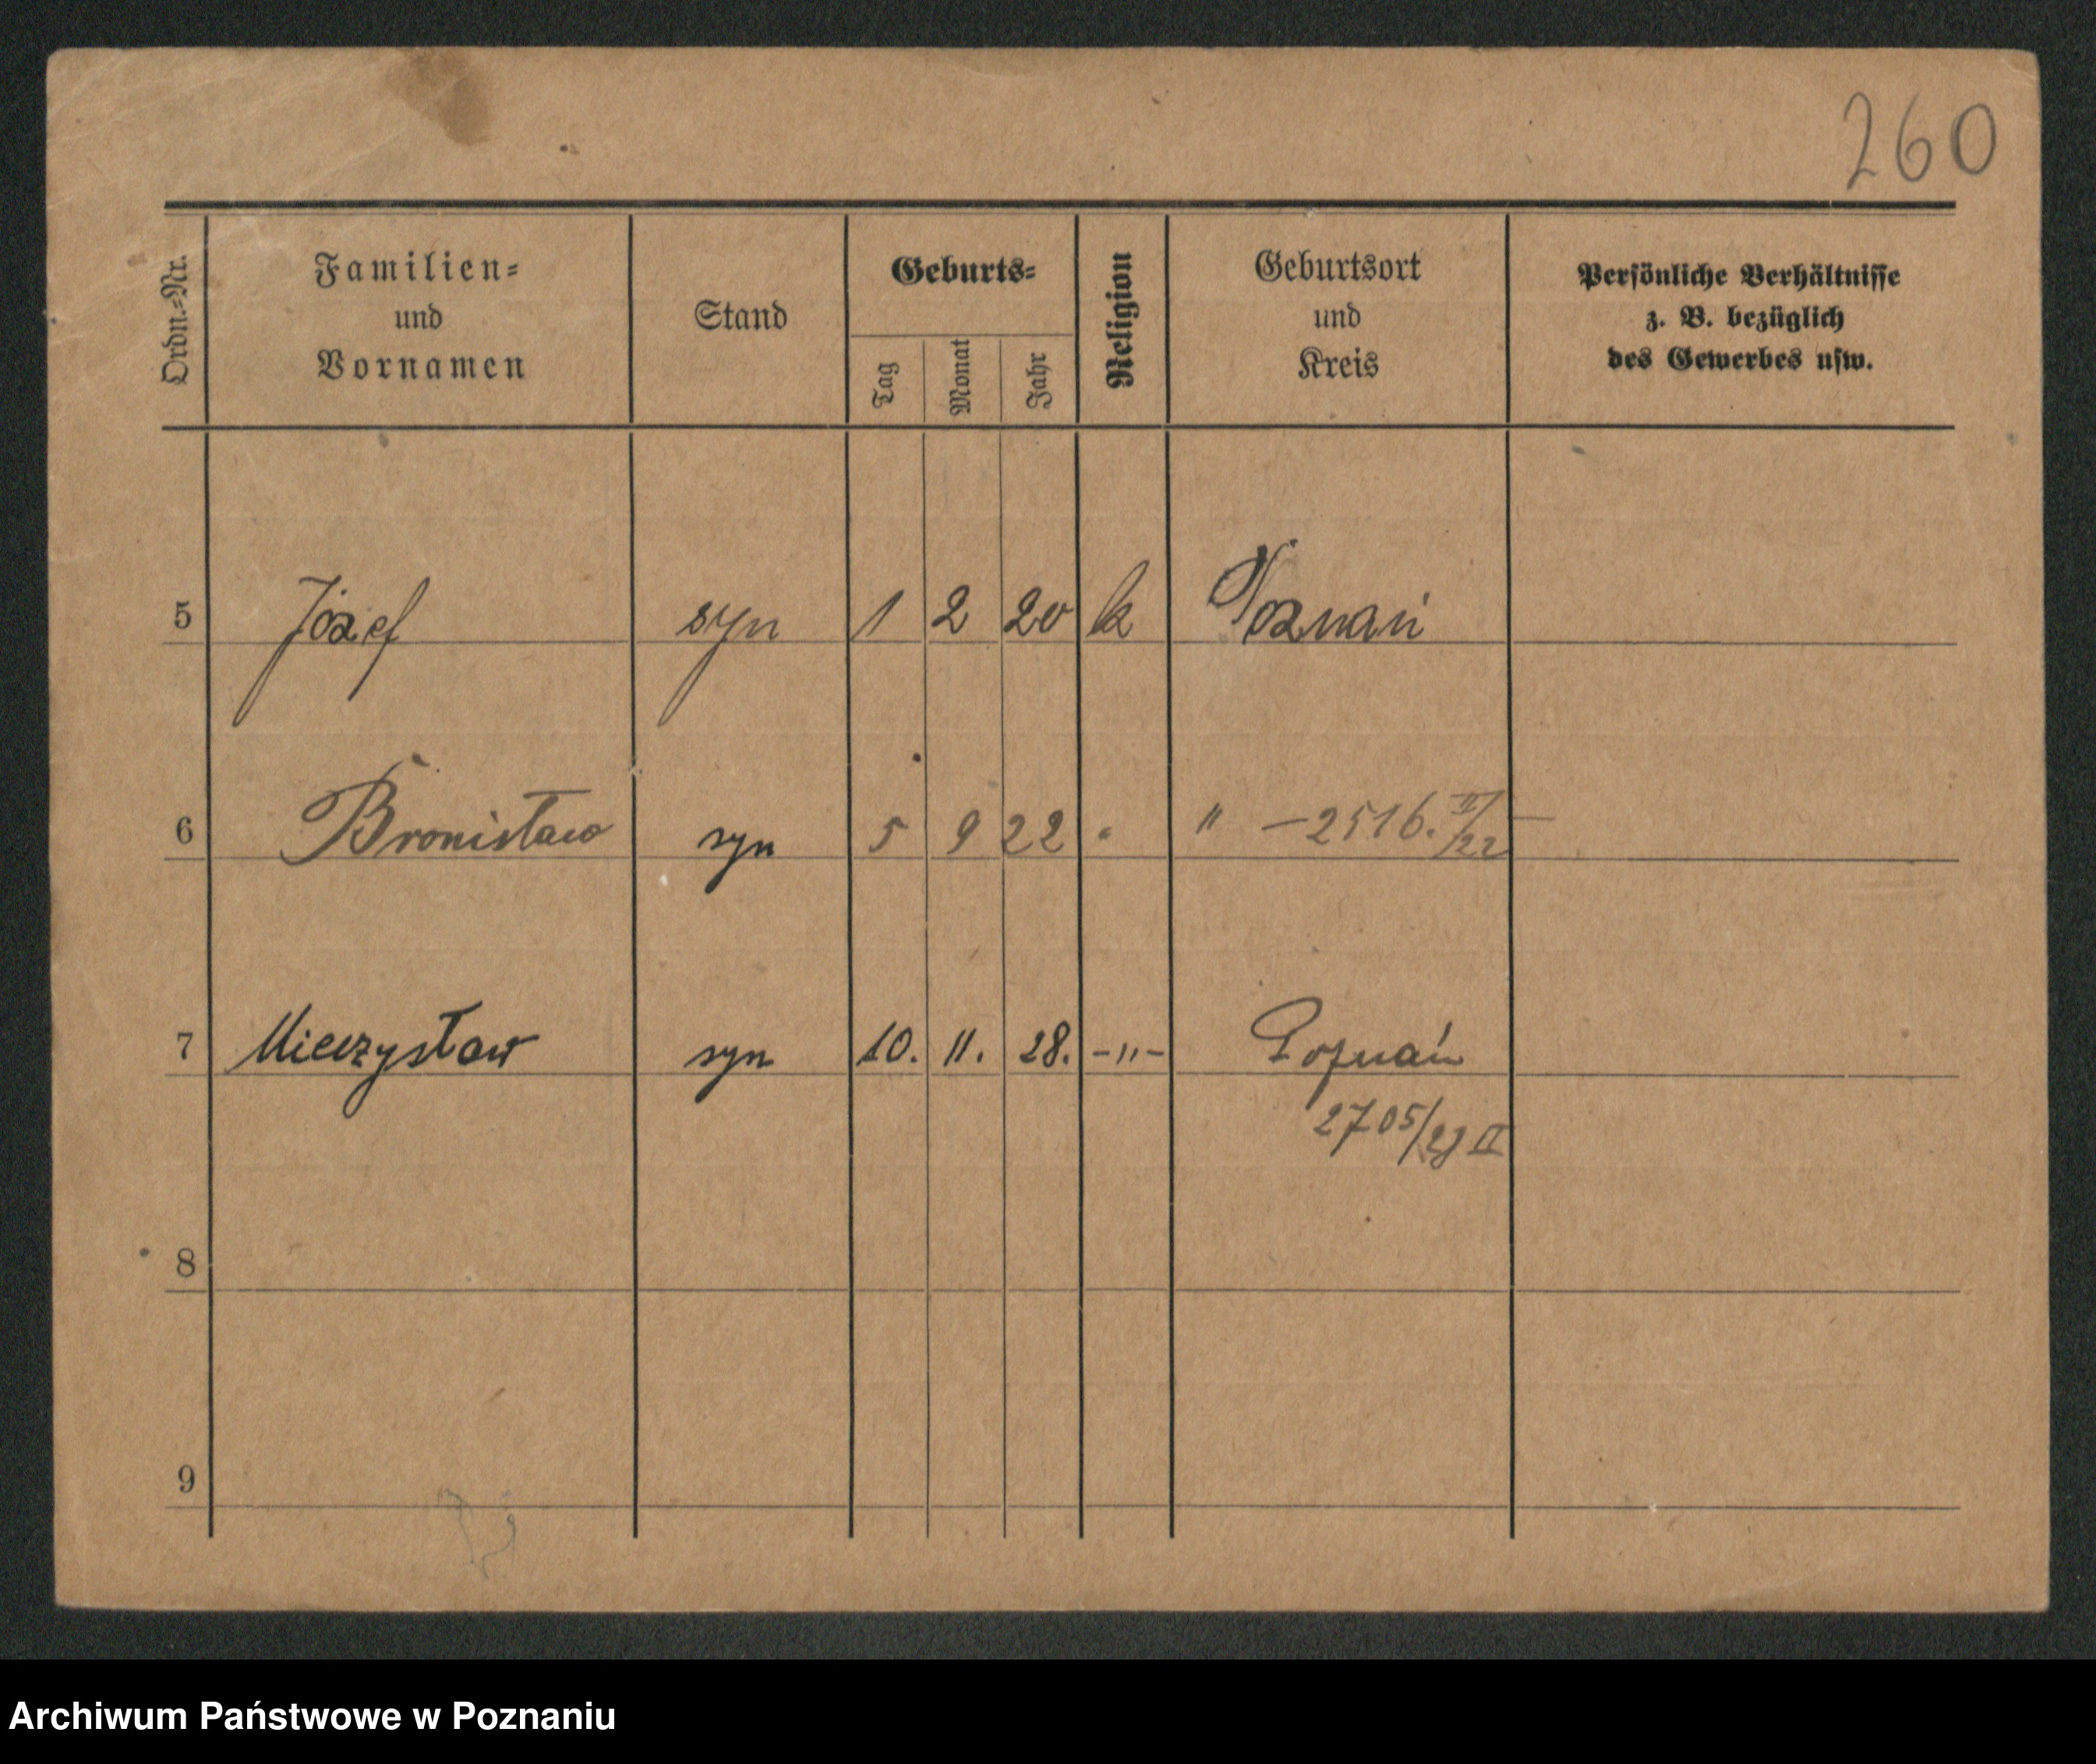 260
Ordn.-Nr. Familien- und Vornamen Stand Geburts- Tag Monat Jahr Religion Geburtsort und Kreis Persönliche Verhältnisse z. B. bezüglich des Gewerbes usw.
5 Józef syn 1 2 20 k Poznań
6 Bronisław syn 5 9 22 " " -2516. II/22 -
7 Mieczysław syn 10. 11. 28. -"- Poznań
2705/29 II
8
9
Archiwum Państwowe w Poznaniu